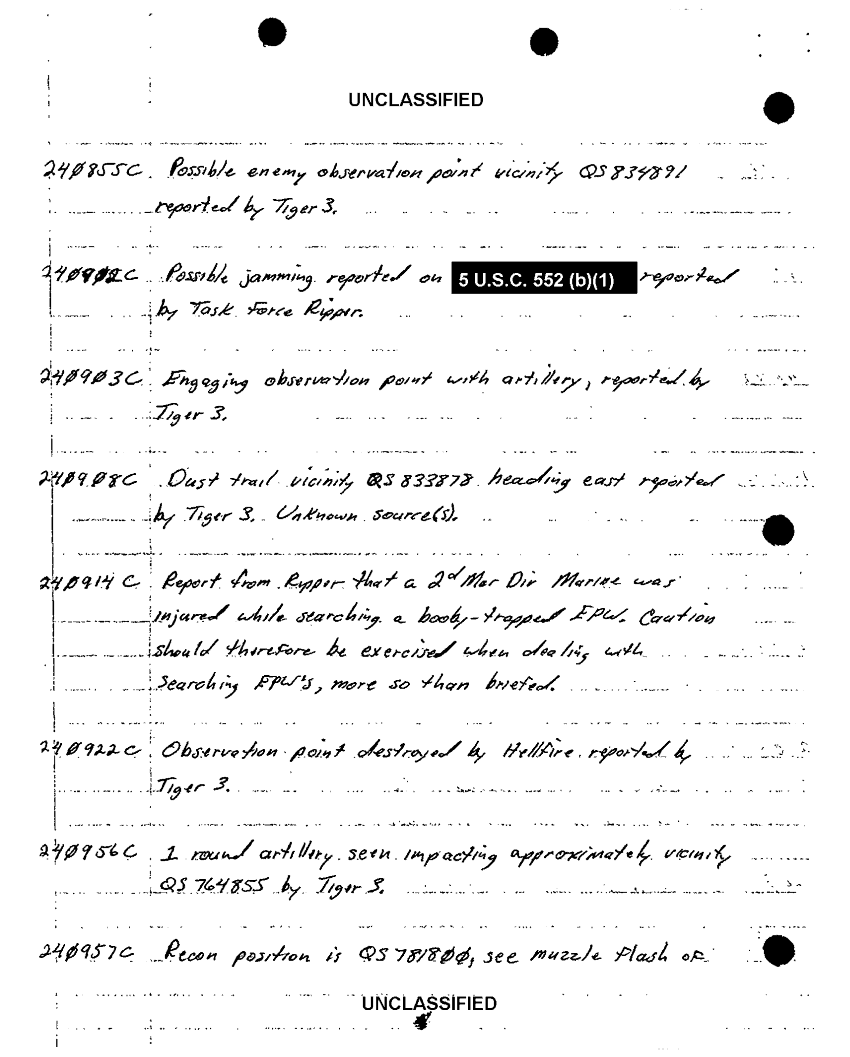 UNCLASSIFIED
24Ø855C Possible enemy observation point vicinity QS834891
reported by Tiger 3.
24Ø902C Possible jamming reported on 5 U.S.C. 552 (b)(1) reported
by Task Force Ripper.
24Ø9Ø3C Engaging observation point with artillery, reported by
Tiger 3.
24Ø9Ø8C Dust trail vicinity QS833878 heading east reported
by Tiger 3. Unknown source(s).
24Ø914C Report from Ripper that a 2d Mar Div Marine was
injured while searching a booby-trapped EPW. Caution
should therefore be exercised when dealing with
searching EPW's, more so than briefed.
24Ø922C Observation point destroyed by Hellfire reported by
Tiger 3.
24Ø956C 1 round artillery seen impacting approximately vicinity
QS764855 by Tiger 3.
24Ø957C Recon position is QS7818ØØ, see muzzle flash of
UNCLASSIFIED